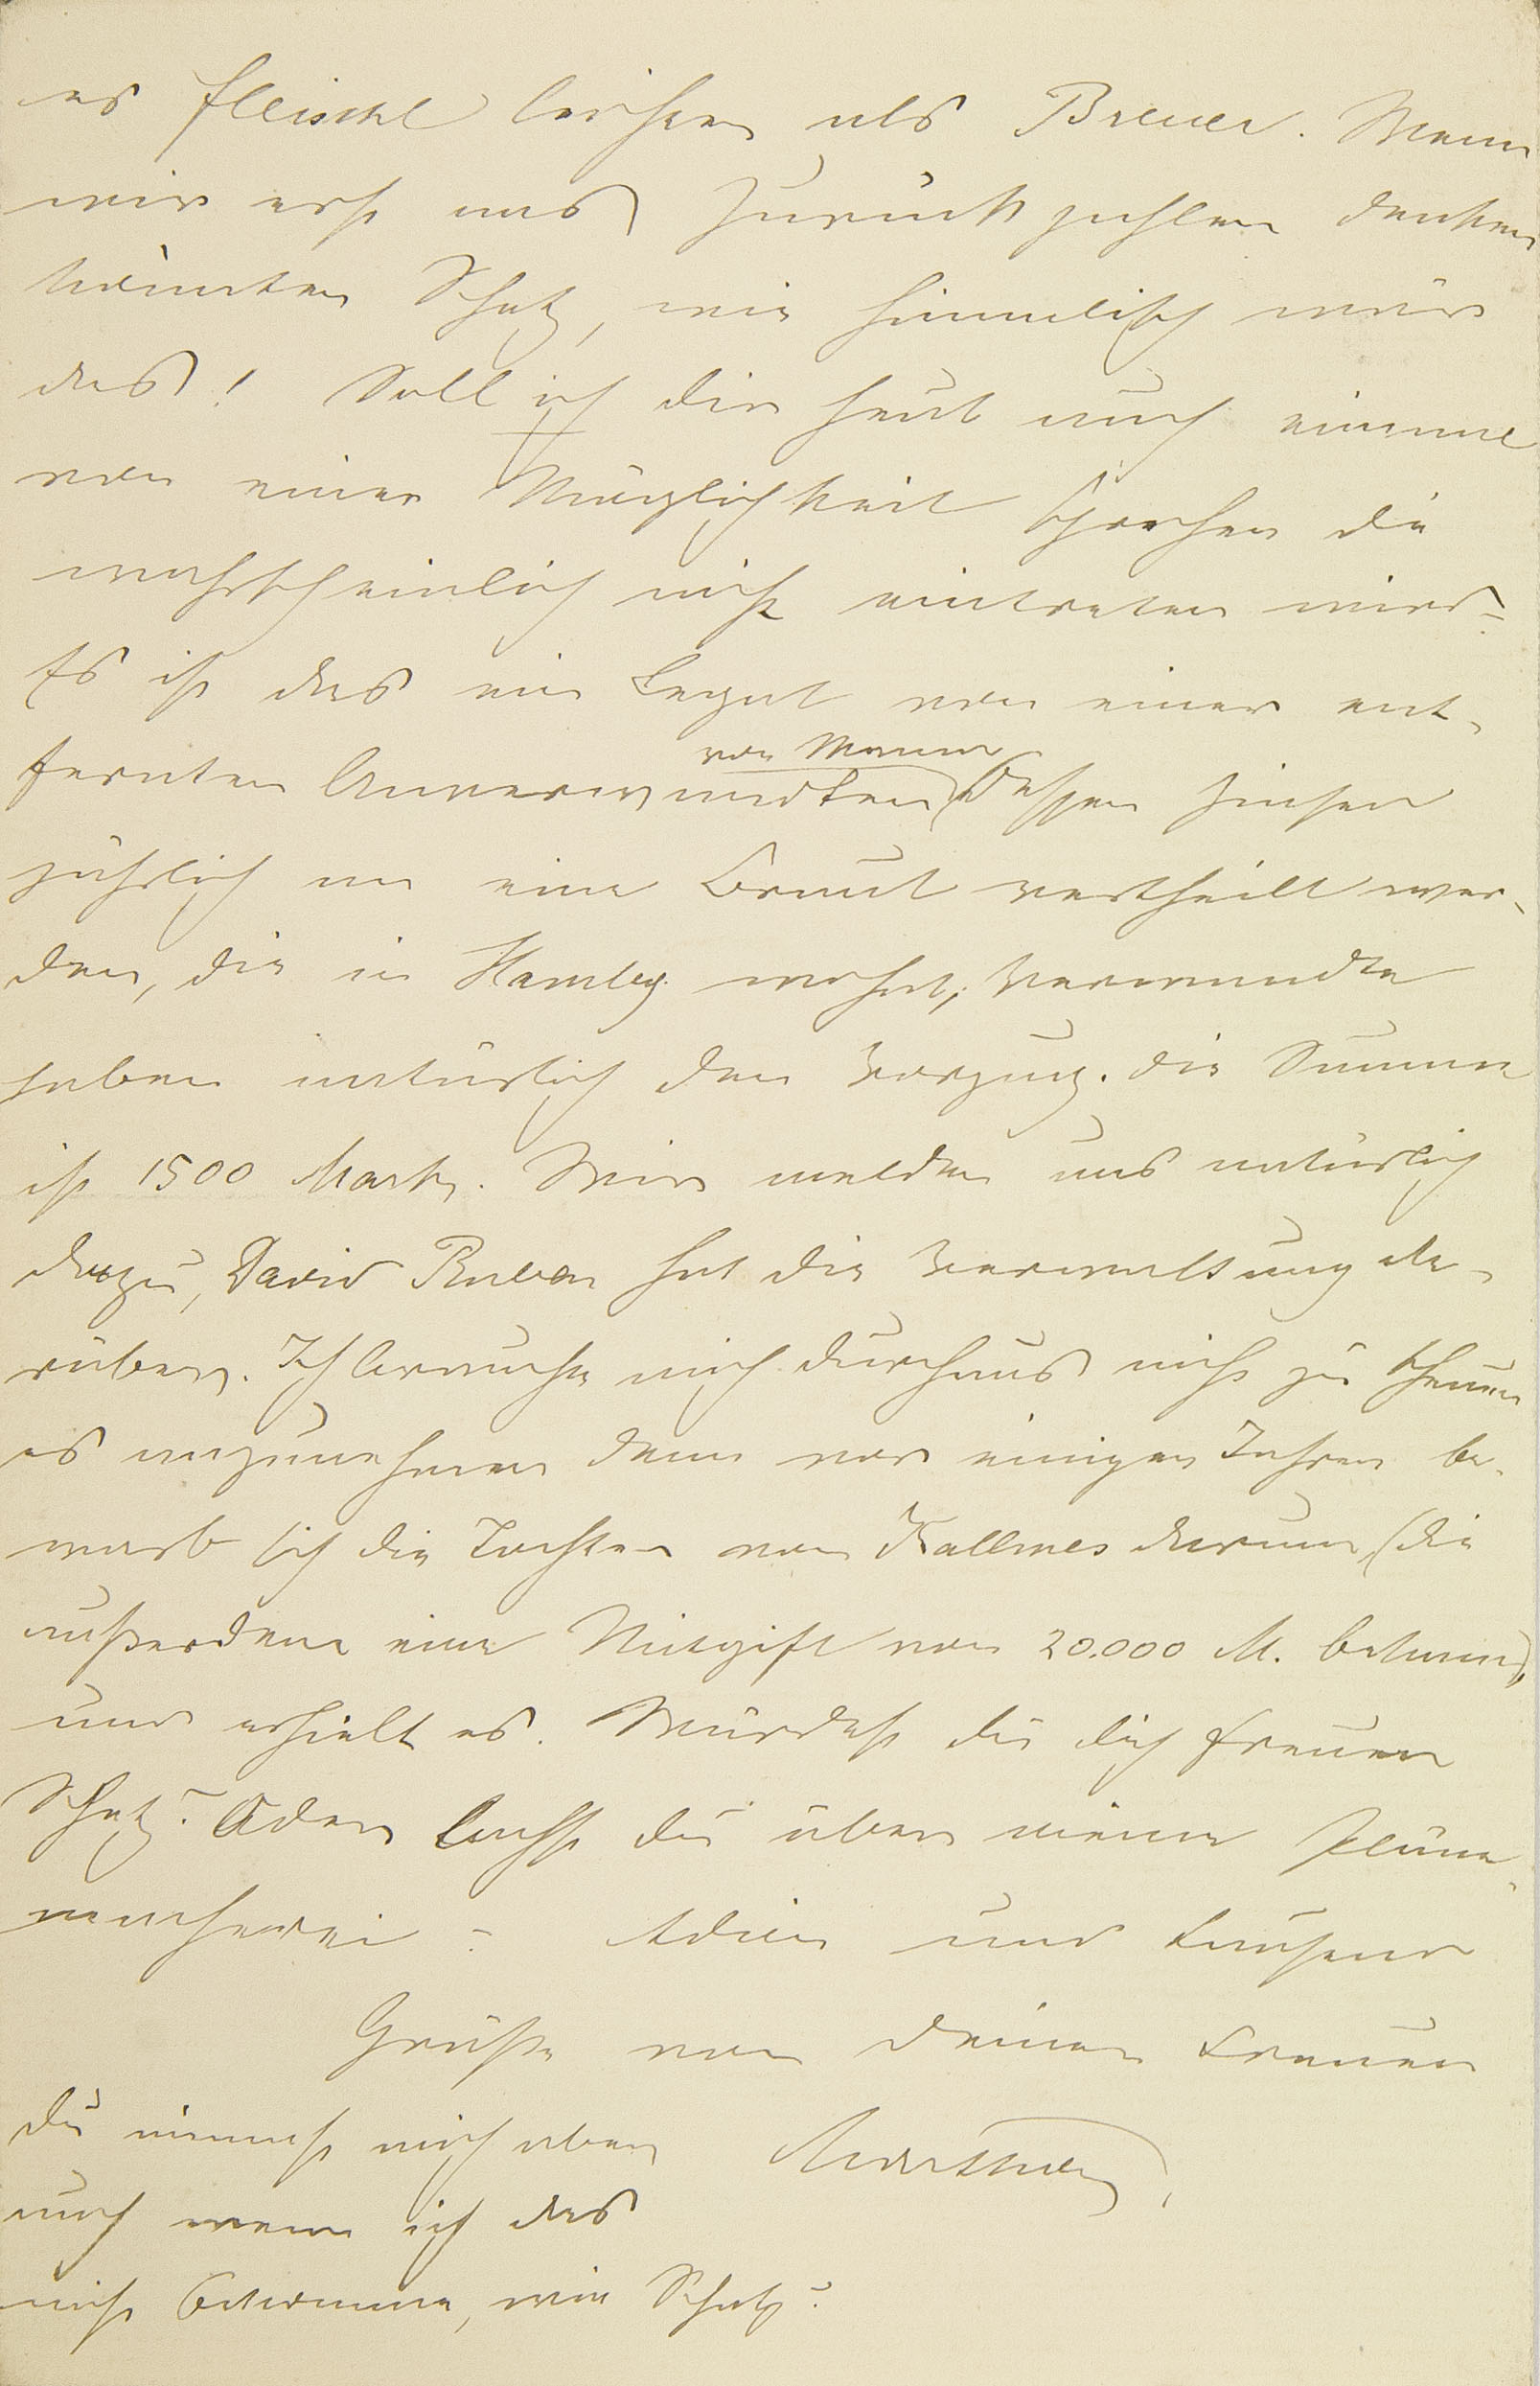 es Fleischl leichter als Breuer. Wenn
wir erst ans Zurückzahlen denken
könnten Schatz, wie himmlisch wär
das! Soll ich dir heut auch einmal
von einer Möglichkeit sprechen die
wahrscheinlich nicht eintreten wird?
Es ist das ein Legat von einer ent-
fernten Anverwandten von Mama dessen Zinsen
jährlich an eine Braut vertheilt wer-
den, die in Hambg. wohnt, Verwandte
haben natürlich den Vorzug. Die Summe
ist 1500 Mark. Wir melden uns natürlich
dazu, David Ruben hat die Verwaltung da-
rüber. Ich brauche mich durchaus nicht zu schämen
es anzunehmen denn vor einigen Jahren be-
warb sich die Tochter von Kallmes darum, (die
außerdem eine Mitgift von 20.000 M. bekam),
und erhielt es. Würdest du dich freuen
Schatz? Oder lachst du über meine Pläne-
macherei? Adieu und tausend
Grüße von deiner treuen
Du nimmst mich aber Marthen,
auch wenn ich das
nicht bekomme, wie Schatz?